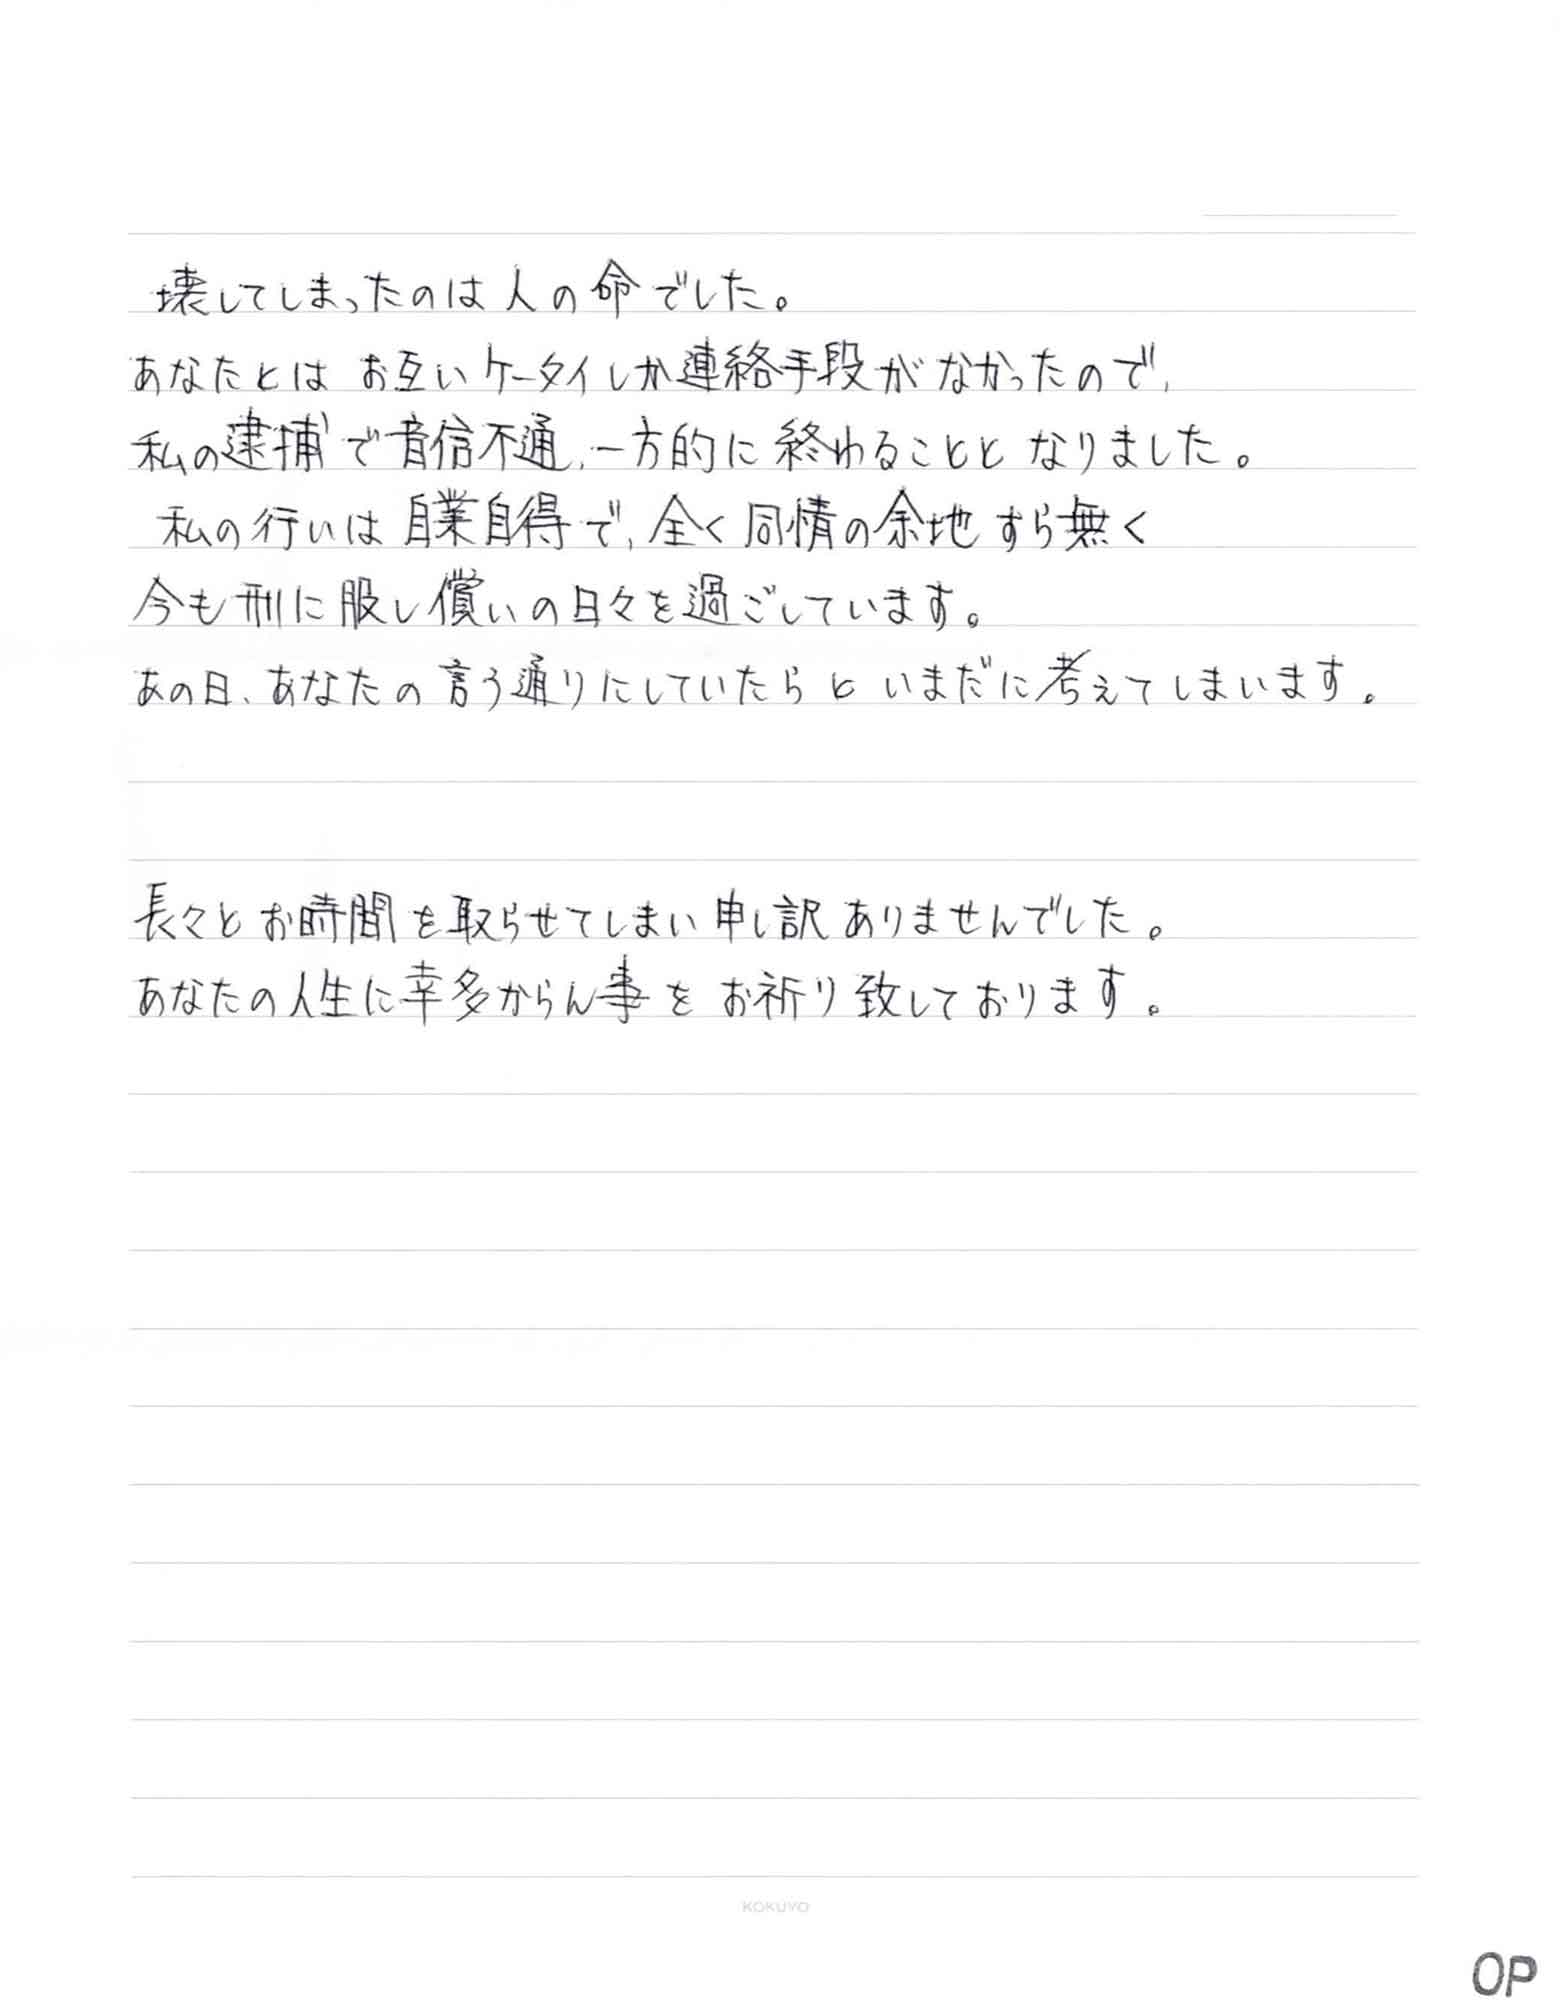 壊してしまったのは人の命でした。
あなたとは お互いケータイしか連絡手段がなかったので、
私の逮捕で音信不通、一方的に終わることとなりました。
私の行いは自業自得で、全く同情の余地すら無く
今も刑に服し償いの日々を過ごしています。
あの日、あなたの言う通りにしていたらと いまだに考えてしまいます。
長々とお時間を取らせてしまい申し訳ありませんでした。
あなたの人生に幸多からん事をお祈り致しております。
KOKUYO
OP